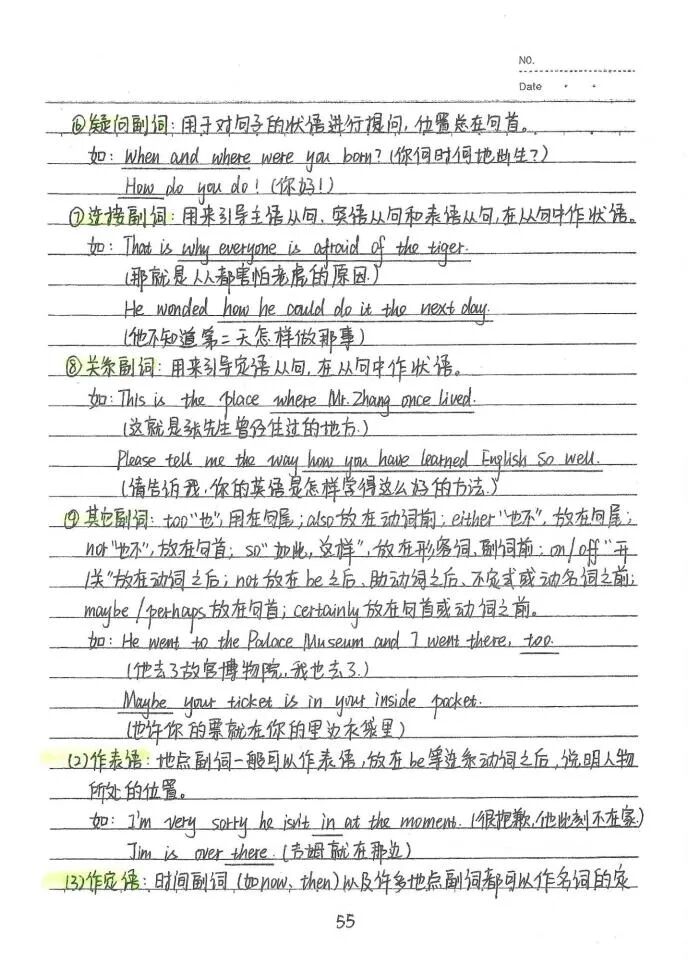 NO.
Date
⑥疑问副词：用于对句子的状语进行提问，位置总在句首。
如：When and where were you born?（你何时何地出生？）
How do you do!（你好！）
⑦连接副词：用来引导主语从句、宾语从句和表语从句，在从句中作状语。
如：That is why everyone is afraid of the tiger.
（那就是人人都害怕老虎的原因.）
He wonded how he could do it the next day.
（他不知道第二天怎样做那事）
⑧关系副词：用来引导定语从句，在从句中作状语。
如：This is the place where Mr. Zhang once lived.
（这就是张先生曾经住过的地方.）
Please tell me the way how you have learned English so well.
（请告诉我，你的英语是怎样学得这么好的方法.）
⑨其它副词：too"也"，用在句尾；also放在动词前；either"也不"，放在句尾；
nor"也不"，放在句首；so"如此，这样"，放在形容词、副词前；on/off"开
/关"放在动词之后；not放在be之后、助动词之后、不定式或动名词之前；
maybe/perhaps放在句首；certainly放在句首或动词之前。
如：He went to the Palace Museum and I went there, too.
（他去了故宫博物院，我也去了.）
Maybe your ticket is in your inside pocket.
（也许你的票就在你的里边衣袋里）
(2)作表语：地点副词一般可以作表语，放在be等连系动词之后，说明人物
所处的位置。
如：I'm very sorry he isn't in at the moment.（很抱歉，他此刻不在家）
Jim is over there.（吉姆就在那边）
(3)作定语：时间副词（如now、then）以及许多地点副词都可以作名词的定
55